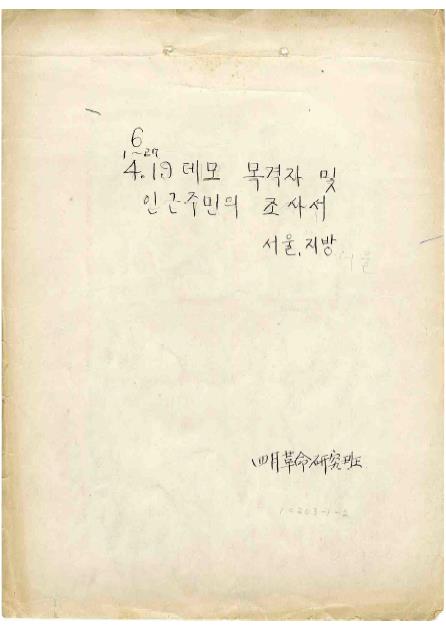 6
1~27
4.19 데모 목격자 및
인근주민의 조사서
서울, 지방
서울
四月革命硏究班